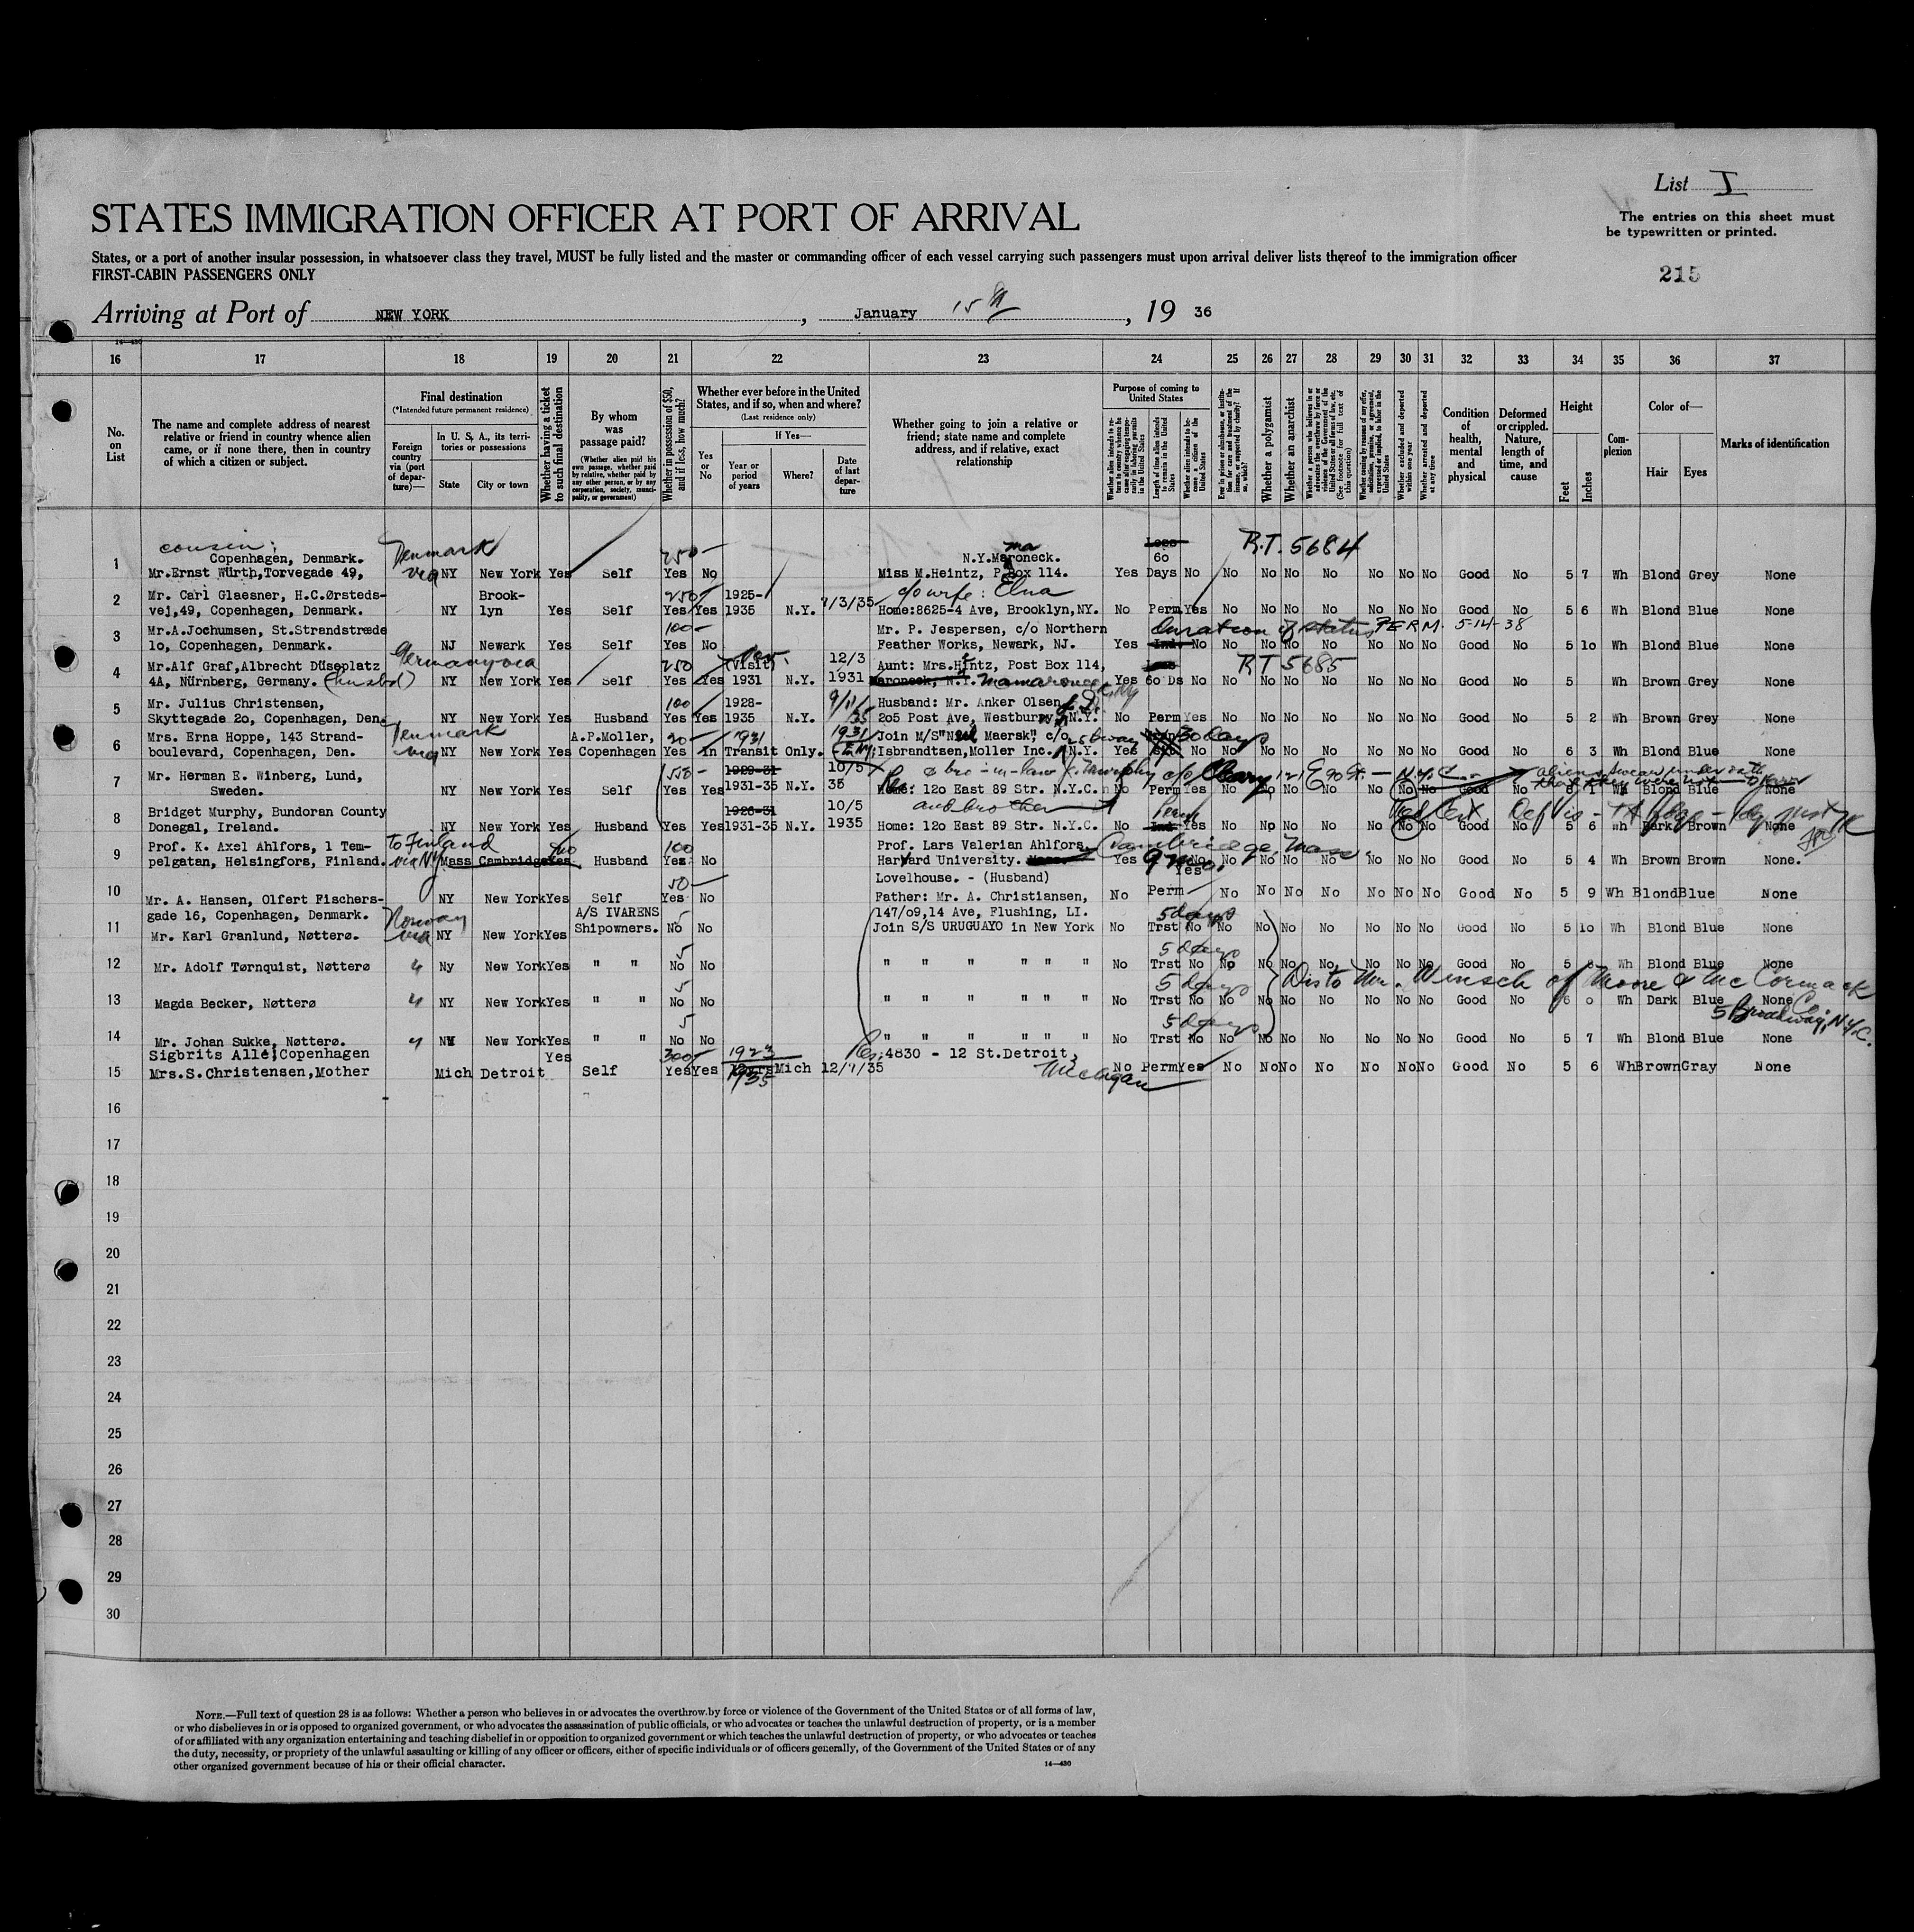 List I
STATES IMMIGRATION OFFICER AT PORT OF ARRIVAL
The entries on this sheet must
be typewritten or printed.
States, or a port of another insular possession, in whatsoever class they travel, MUST be fully listed and the master or commanding officer of each vessel carrying such passengers must upon arrival deliver lists thereof to the immigration officer
FIRST-CABIN PASSENGERS ONLY
215
Arriving at Port of NEW YORK, January 15th, 19 36
16 17 18 19 20 21 22 23 24 25 26 27 28 29 30 31 32 33 34 35 36 37
No. on List
The name and complete address of nearest relative or friend in country whence alien came, or if none there, then in country of which a citizen or subject.
Final destination
(*Intended future permanent residence)
Foreign country via (port of departure)—
In U. S. A., its territories or possessions
State
City or town
Whether having a ticket to such final destination
By whom was passage paid?
(Whether alien paid his own passage, whether paid by relative, whether paid by any other person, or by any corporation, society, municipality, or government)
Whether in possession of $50, and if less, how much?
Whether ever before in the United States, and if so, when and where?
(Last residence only)
Yes or No
If Yes—
Year or period of years
Where?
Date of last departure
Whether going to join a relative or friend; state name and complete address, and if relative, exact relationship
Purpose of coming to United States
Length of time alien intends to remain in the United States
Whether alien intends to become a citizen of the United States
Whether a polygamist
Whether an anarchist
(See footnote for full text of this question)
Whether excluded and deported within one year
Whether arrested and deported at any time
Condition of health, mental and physical
Deformed or crippled. Nature, length of time, and cause
Height
Feet
Inches
Complexion
Color of—
Hair
Eyes
Marks of identification
cousin: Denmark 250- ma 60 R.T. 5684
Copenhagen, Denmark. N.Y.Maroneck.
1 Mr.Ernst Würth,Torvegade 49, via NY New York Yes Self Yes No Miss M.Heintz, P.Box 114. Yes Days No No No No No No No No Good No 5 7 Wh Blond Grey None
2 Mr. Carl Glaesner, H.C.Ørsteds- Brook- 250 1925- 7/3/35 c/o wife: Elna
vej,49, Copenhagen, Denmark. NY lyn Yes Self Yes Yes 1935 N.Y. Home:8625-4 Ave, Brooklyn,NY. No Perm Yes No No No No No No No Good No 5 6 Wh Blond Blue None
3 Mr.A.Jochumsen, St.Strandstræde 100- Mr. P. Jespersen, c/o Northern Duration of status PERM. 5-14-38
1o, Copenhagen, Denmark. NJ Newark Yes Self Yes No Feather Works, Newark, NJ. Yes Ind. No No No No No No No No Good No 5 1o Wh Blond Blue None
4 Mr.Alf Graf,Albrecht Düseplatz Germany via 250 (Visit) 12/3 Aunt: Mrs.Hintz, Post Box 114, RT 5685
4A, Nürnberg, Germany. (husbd) NY New York Yes Self Yes Yes 1931 N.Y. 1931 Maroneck, N.Y. Mamaroneck, NY Yes 6o Ds No No No No No No No No Good No 5 Wh Brown Grey None
5 Mr. Julius Christensen, 100 1928- 9/11/35 Husband: Mr. Anker Olsen
Skyttegade 2o, Copenhagen, Den. NY New York Yes Husband Yes Yes 1935 N.Y. 2o5 Post Ave, Westbury, N.Y. No Perm Yes No No No No No No No Good No 5 2 Wh Brown Grey None
6 Mrs. Erna Hoppe, 143 Strand- Denmark A.P.Moller, 20- 1931 1931 Join M/S"Niel Maersk", c/o 30 days
boulevard, Copenhagen, Den. via NY New York Yes Copenhagen Yes In Transit Only. Isbrandtsen,Moller Inc. N.Y. Yes No No No No No No No No Good No 6 3 Wh Blond Blue None
7 Mr. Herman E. Winberg, Lund, 550- 1929-31 10/5 bro-in-law c/o Cleary 121 E 90 St. - N.Y.C.
Sweden. NY New York Yes Self Yes Yes 1931-35 N.Y. 35 Home: 12o East 89 Str. N.Y.C. No Perm Yes No No No No No No No Good No 6 1 Wh Blond Blue None
8 Bridget Murphy, Bundoran County 1926-31 10/5 and brother Perm
Donegal, Ireland. NY New York Yes Husband Yes Yes 1931-35 N.Y. 1935 Home: 12o East 89 Str. N.Y.C. No Ind. Yes No No No No No No No Good No 5 6 Wh Dark Brown None
9 Prof. K. Axel Ahlfors, 1 Tem- to Finland no 100 Prof. Lars Valerian Ahlfors, Cambridge, Mass.
pelgatan, Helsingfors, Finland. via NY Mass Cambridge Yes Husband Yes No Harvard University. Yes 9 mo. No No No No No No No No Good No 5 4 Wh Brown Brown None.
Lovelhouse. - (Husband) Yes
10 Mr. A. Hansen, Olfert Fischers- NY New York Yes Self 50- Yes No Father: Mr. A. Christiansen, No Perm No No No No No No No Good No 5 9 Wh Blond Blue None
gade 16, Copenhagen, Denmark. A/S IVARENS 147/o9,14 Ave, Flushing, LI.
11 Mr. Karl Granlund, Nøtterø. Norway via NY New York Yes Shipowners. 5 No No Join S/S URUGUAYO in New York No 5 days Trst No No No No No No No No Good No 5 1o Wh Blond Blue None
12 Mr. Adolf Tørnquist, Nøtterø " Ny New York Yes " " 5 No No " " " " " " No 5 days Trst No No No No No No No No Good No 5 Wh Blond Blue None
Dis to Mr. Wensch of Moore & McCormack Co. 5 Broadway, N.Y.C.
13 Magda Becker, Nøtterø " NY New York Yes " " 5 No No " " " " " " No 5 days Trst No No No No No No No No Good No 6 o Wh Dark Blue None
14 Mr. Johan Sukke, Nøtterø. " NY New York Yes " " 5 No No " " " " " " No 5 days Trst No No No No No No No No Good No 5 7 Wh Blond Blue None
Sigbrits Allé, Copenhagen Yes 300 1923 Res: 4830 - 12 St.Detroit,
15 Mrs.S.Christensen,Mother Mich Detroit Self Yes Yes 1935 Mich 12/7/35 Michigan No Perm Yes No No No No No No No Good No 5 6 Wh Brown Gray None
16
17
18
19
20
21
22
23
24
25
26
27
28
29
30
NOTE.—Full text of question 28 is as follows: Whether a person who believes in or advocates the overthrow by force or violence of the Government of the United States or of all forms of law,
or who disbelieves in or is opposed to organized government, or who advocates the assassination of public officials, or who advocates or teaches the unlawful destruction of property, or is a member
of or affiliated with any organization entertaining and teaching disbelief in or opposition to organized government or which teaches the unlawful destruction of property, or who advocates or teaches
the duty, necessity, or propriety of the unlawful assaulting or killing of any officer or officers, either of specific individuals or of officers generally, of the Government of the United States or of any
other organized government because of his or their official character.
14—430